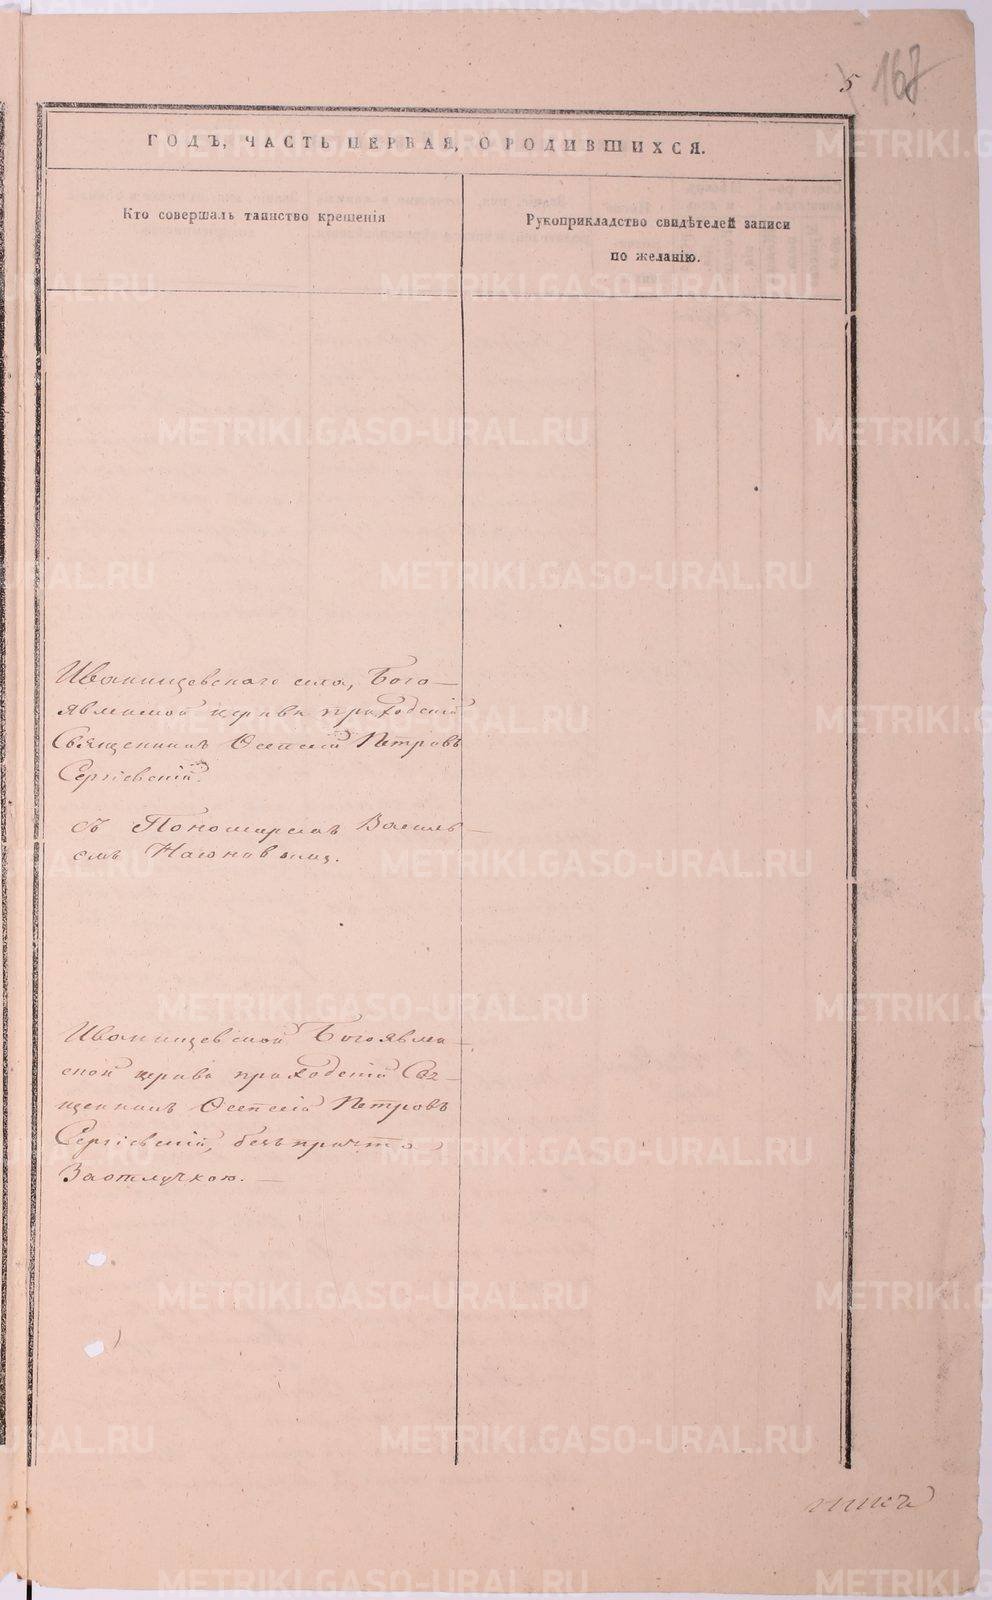 5 168
ГОДЪ, ЧАСТЬ ПЕРВАЯ, О РОДИВШИХСЯ.
Кто совершалъ таинство крещенія
Рукоприкладство свидѣтелей записи
по желанію.
Иванищевскаго села, Бого-
явленской церкви приходскій
Священникъ Петровъ
Сергіевскій.
съ Пономаремъ Василь-
емъ
Иванищевской Богоявлен-
ской церкви приходскій Свя-
щенникъ Петровъ
Сергіевскій, безъ причта
За отлучкою.
METRIKI.GASO-URAL.RU